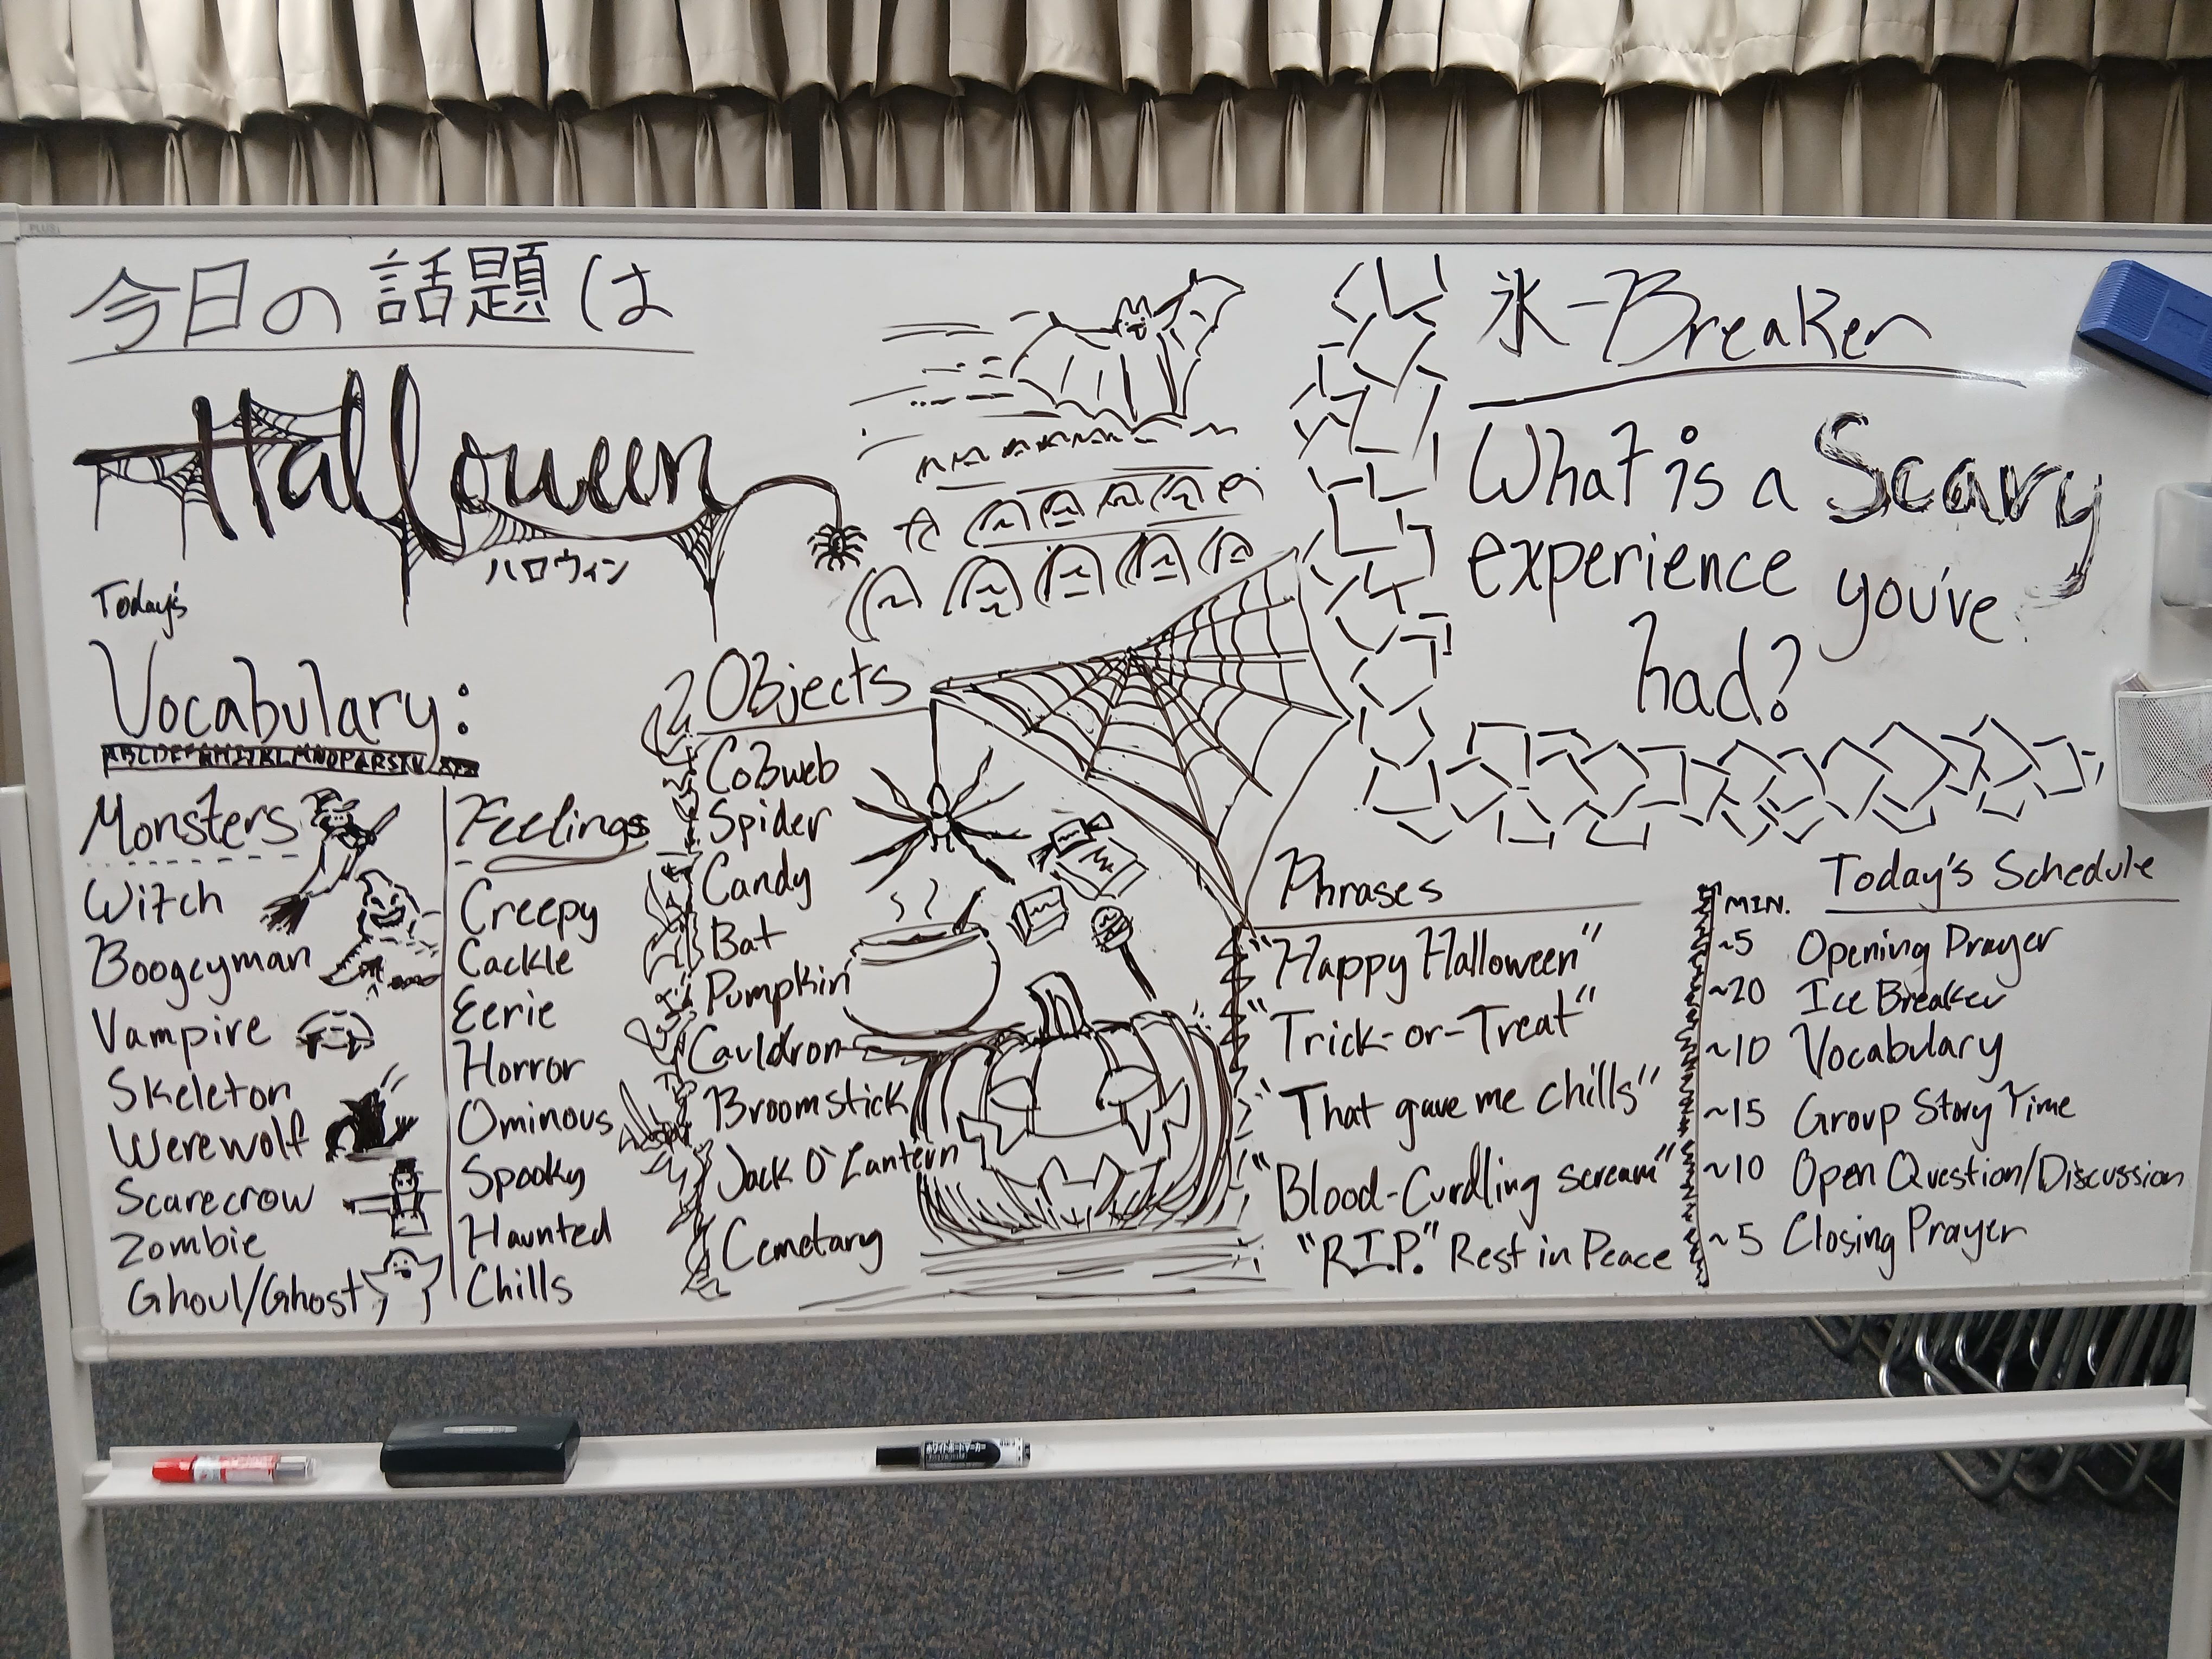 今日の話題は
Halloween
ハロウィン
氷-Breaker
What is a Scary
experience you've
had?
Today's
Vocabulary:
Monsters
Witch
Boogeyman
Vampire
Skeleton
Werewolf
Scarecrow
Zombie
Ghoul/Ghost
Feelings
Creepy
Cackle
Eerie
Horror
Ominous
Spooky
Haunted
Chills
Objects
CoBweb
Spider
Candy
Bat
Pumpkin
Cauldron
Broomstick
Jack O'Lantern
Cemetary
Phrases
"Happy Halloween"
"Trick-or-Treat"
"That gave me chills"
"Blood-Curdling scream"
"R.I.P." Rest in Peace
Today's Schedule
MIN.
~5 Opening Prayer
~20 Ice Breaker
~10 Vocabulary
~15 Group Story Time
~10 Open Question/Discussion
~5 Closing Prayer
PLUS
ホワイトボードマーカー